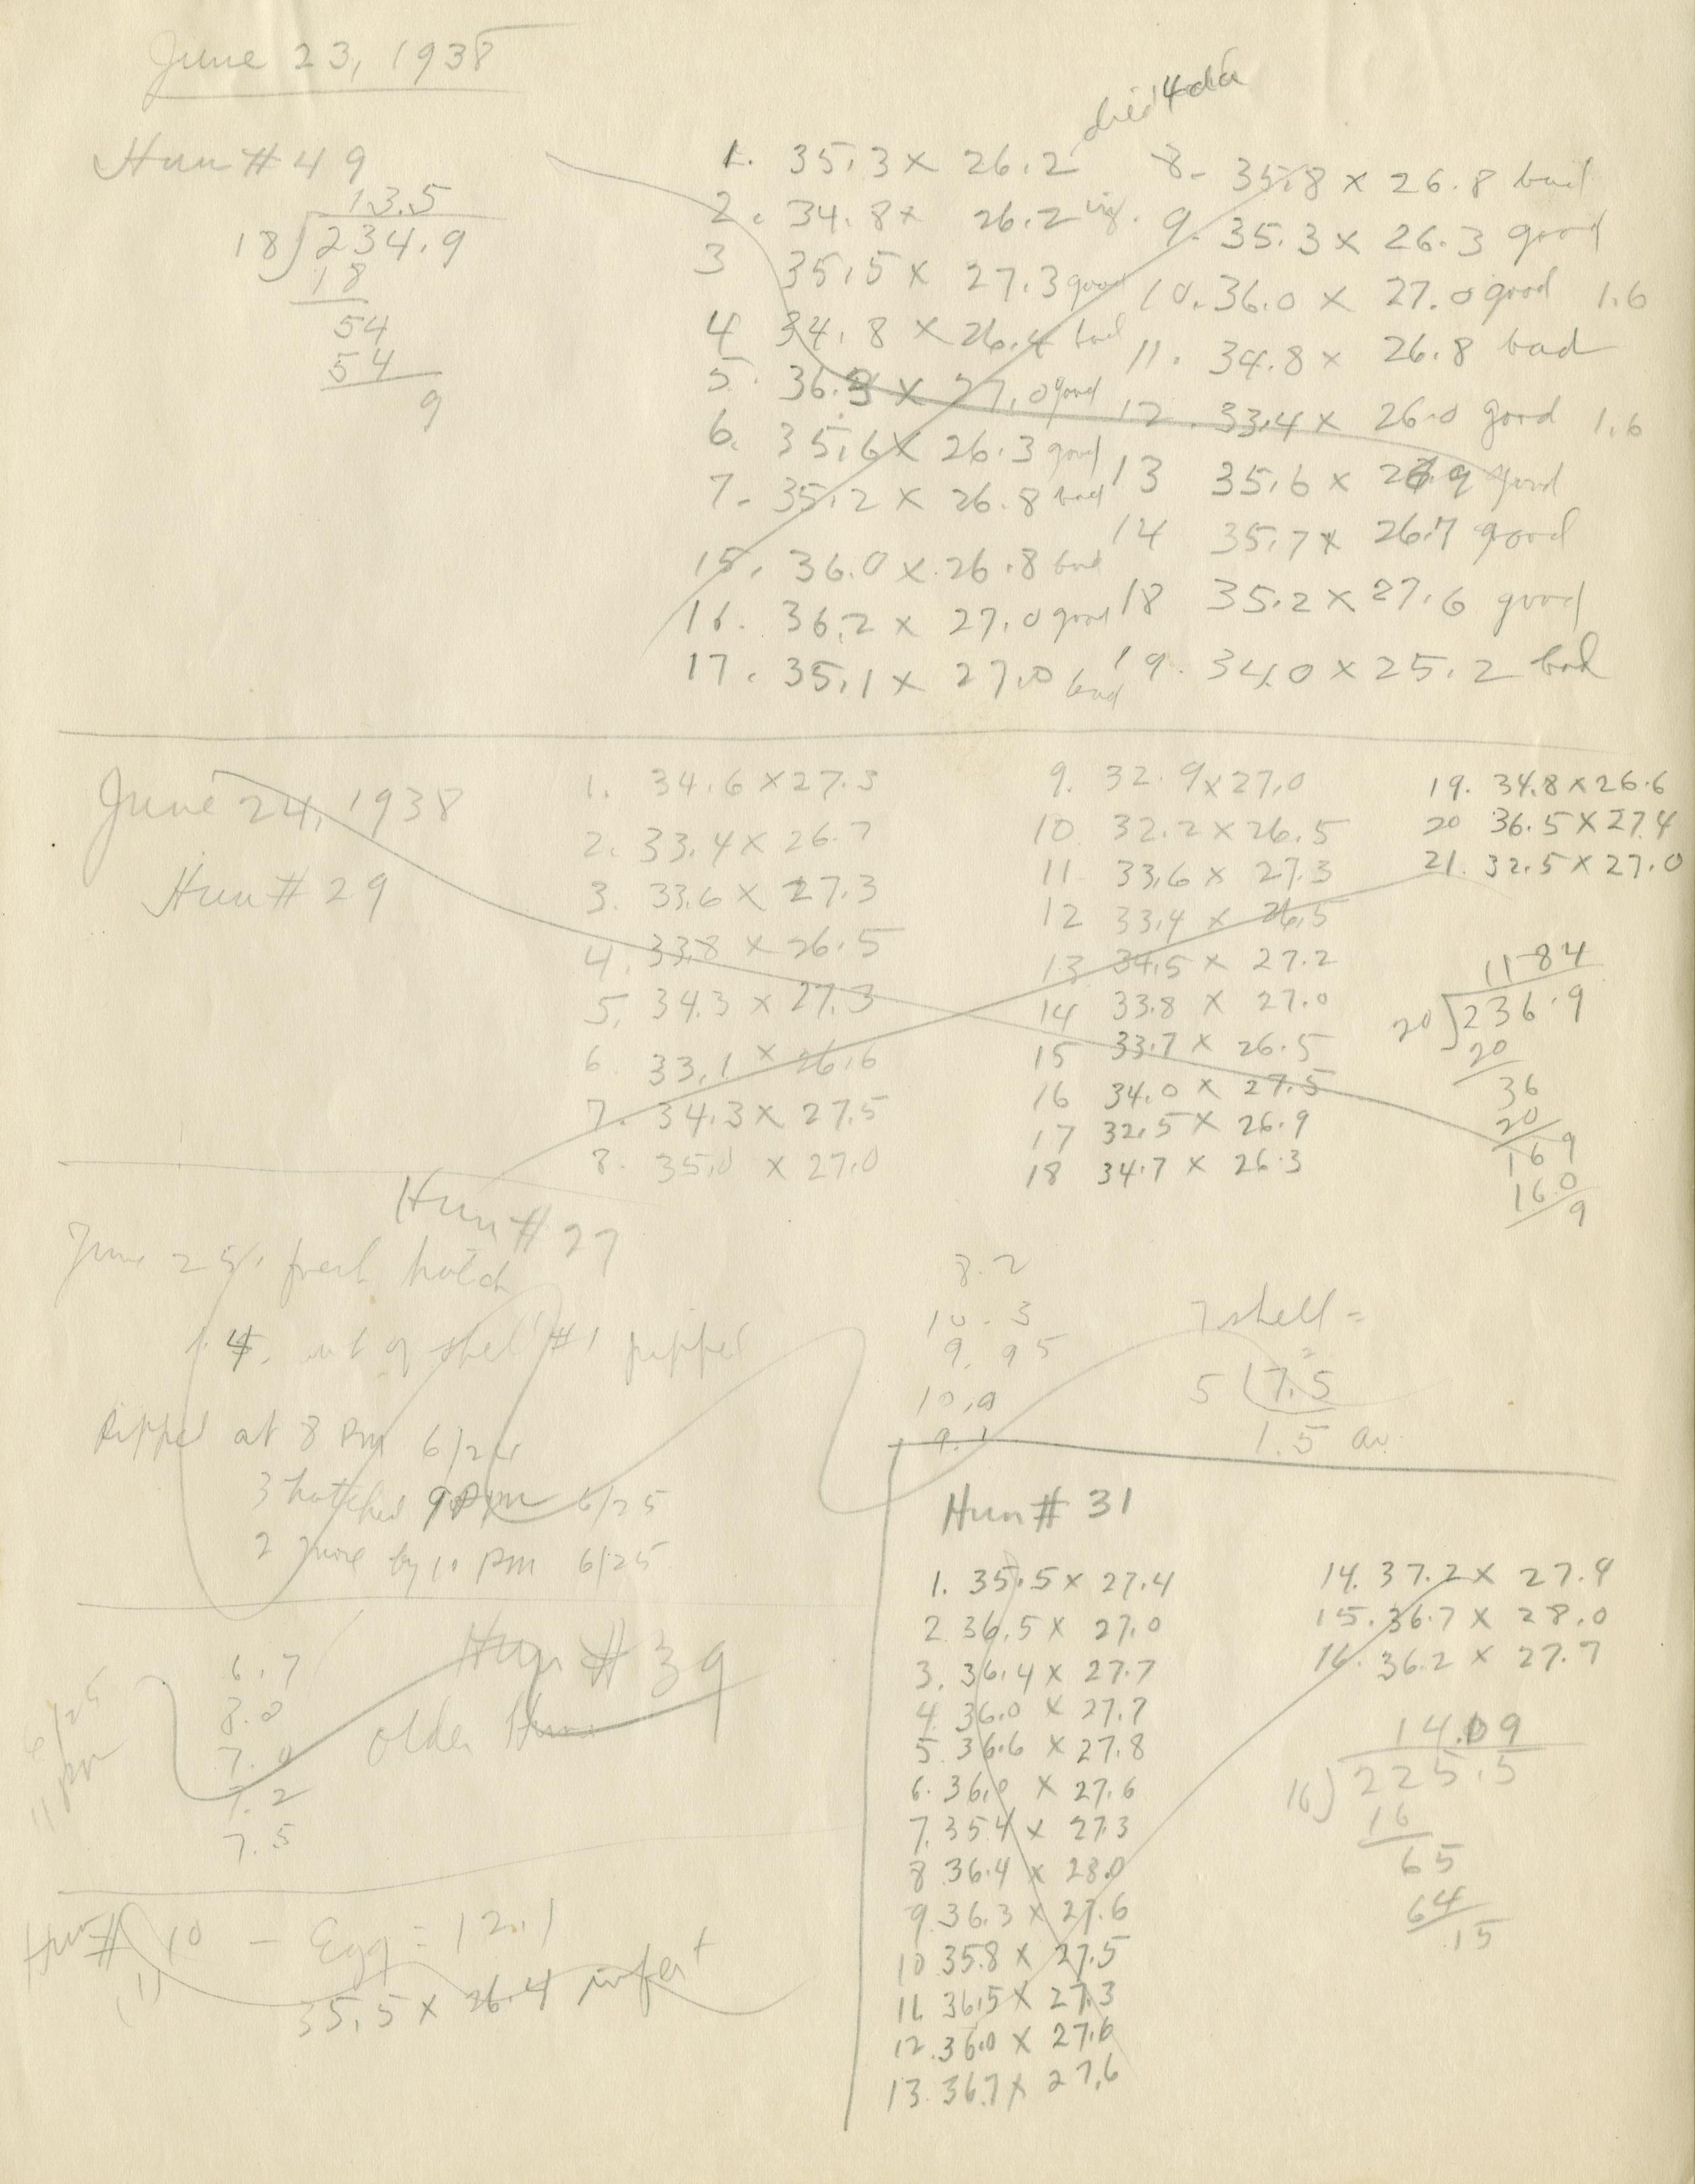 June 23, 1938
Hun # 49
13.5
18) 234.9
18
54
54
9
died 4 da
1. 35.3 x 26.2
2. 34.8 x 26.2
3 35.5 x 27.3 good
4 34.8 x 26.4 bad
5. 36.3 x 27.0 good
6. 35.6 x 26.3 good
7. 35.2 x 26.8 bad
15. 36.0 x 26.8 bad
16. 36.2 x 27.0 good
17. 35.1 x 27.0 bad
8. 35.8 x 26.8 bad
9. 35.3 x 26.3 good
10. 36.0 x 27.0 good 1.6
11. 34.8 x 26.8 bad
12. 33.4 x 26.0 good 1.6
13 35.6 x 26.9 good
14 35.7 x 26.7 good
18 35.2 x 27.6 good
19. 34.0 x 25.2 bad
June 24, 1938
Hun # 29
1. 34.6 x 27.3
2. 33.4 x 26.7
3. 33.6 x 27.3
4. 33.8 x 26.5
5. 34.3 x 27.3
6. 33.1 x 26.6
7. 34.3 x 27.5
8. 35.0 x 27.0
9. 32.9 x 27.0
10 32.2 x 26.5
11 33.6 x 27.3
12 33.4 x 26.5
13 34.5 x 27.2
14 33.8 x 27.0
15 33.7 x 26.5
16 34.0 x 27.5
17 32.5 x 26.9
18 34.7 x 26.3
19. 34.8 x 26.6
20 36.5 x 27.4
21. 32.5 x 27.0
1184
20) 236.9
20
36
20
169
16.0
9
Hun # 27
June 25, fresh hatch
4. out of shell #1 pipped
Pipped at 8 Pm 6/24
3 hatched 9 Pm 6/25
2 more by 10 Pm 6/25
8.2
10.3
9.95
10.0
9.1
7 shell =
5 (7.5
1.5 av.
Hun # 39
older Hun
6/25
11 pm
6.7
8.0
7.0
7.2
7.5
Hun # 10 - Egg = 12.1
(1)
35.5 x 26.4 infert
Hun # 31
1. 35.5 x 27.4
2 36.5 x 27.0
3. 36.4 x 27.7
4. 36.0 x 27.7
5. 36.6 x 27.8
6. 36.0 x 27.6
7. 35.4 x 27.3
8 36.4 x 28.0
9. 36.3 x 27.6
10 35.8 x 27.5
11. 36.5 x 27.3
12. 36.0 x 27.6
13. 36.7 x 27.6
14. 37.2 x 27.9
15. 36.7 x 28.0
16. 36.2 x 27.7
14.09
16) 225.5
16
65
64
.15